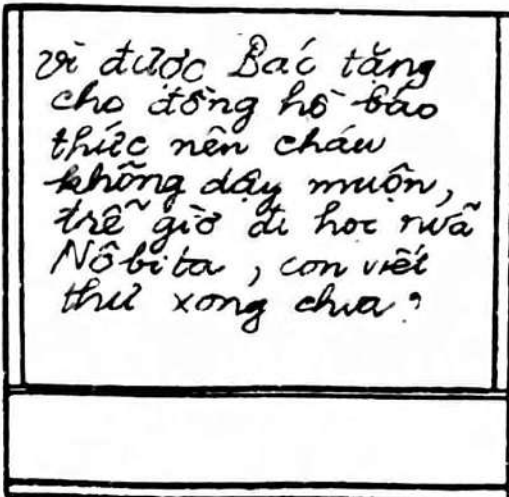 vì được Bác tặng
cho đồng hồ báo
thức nên cháu
không dậy muộn,
trễ giờ đi học nữa
Nôbita, con viết
thư xong chưa?